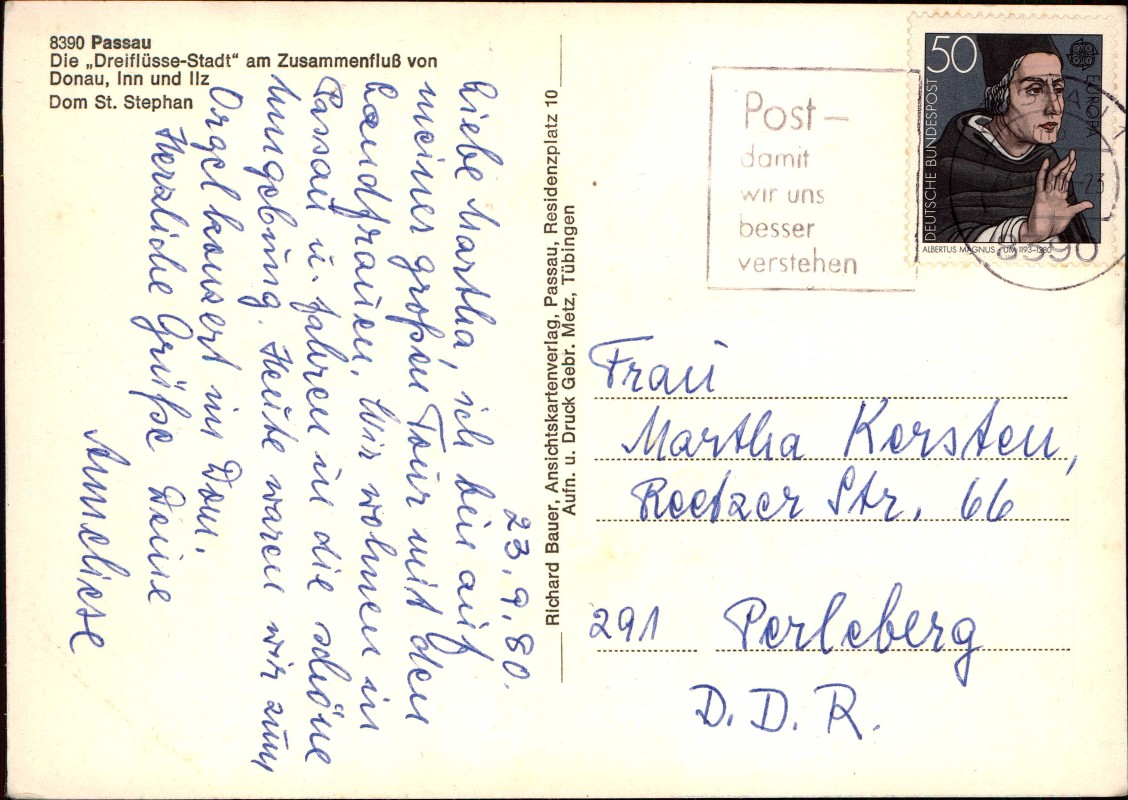 8390 Passau
Die „Dreiflüsse-Stadt" am Zusammenfluß von
Donau, Inn und Ilz
Dom St. Stephan
23.9.80.
Liebe Martha, ich bin auf
meiner großen Tour mit den
Landfrauen. Wir wohnen in
Passau u. fahren in die schöne
Umgebung. Heute waren wir zum
Orgelkonzert im Dom.
Herzliche Grüße Deine
Anneliese
Richard Bauer, Ansichtskartenverlag, Passau, Residenzplatz 10
Aufn. u. Druck Gebr. Metz, Tübingen
Post–
damit
wir uns
besser
verstehen
50
DEUTSCHE BUNDESPOST
EUROPA
ALBERTUS MAGNUS · UM 1193–1280
-23
8390
Frau
Martha Kersten,
Reetzer Str. 66
291 Perleberg
D.D.R.